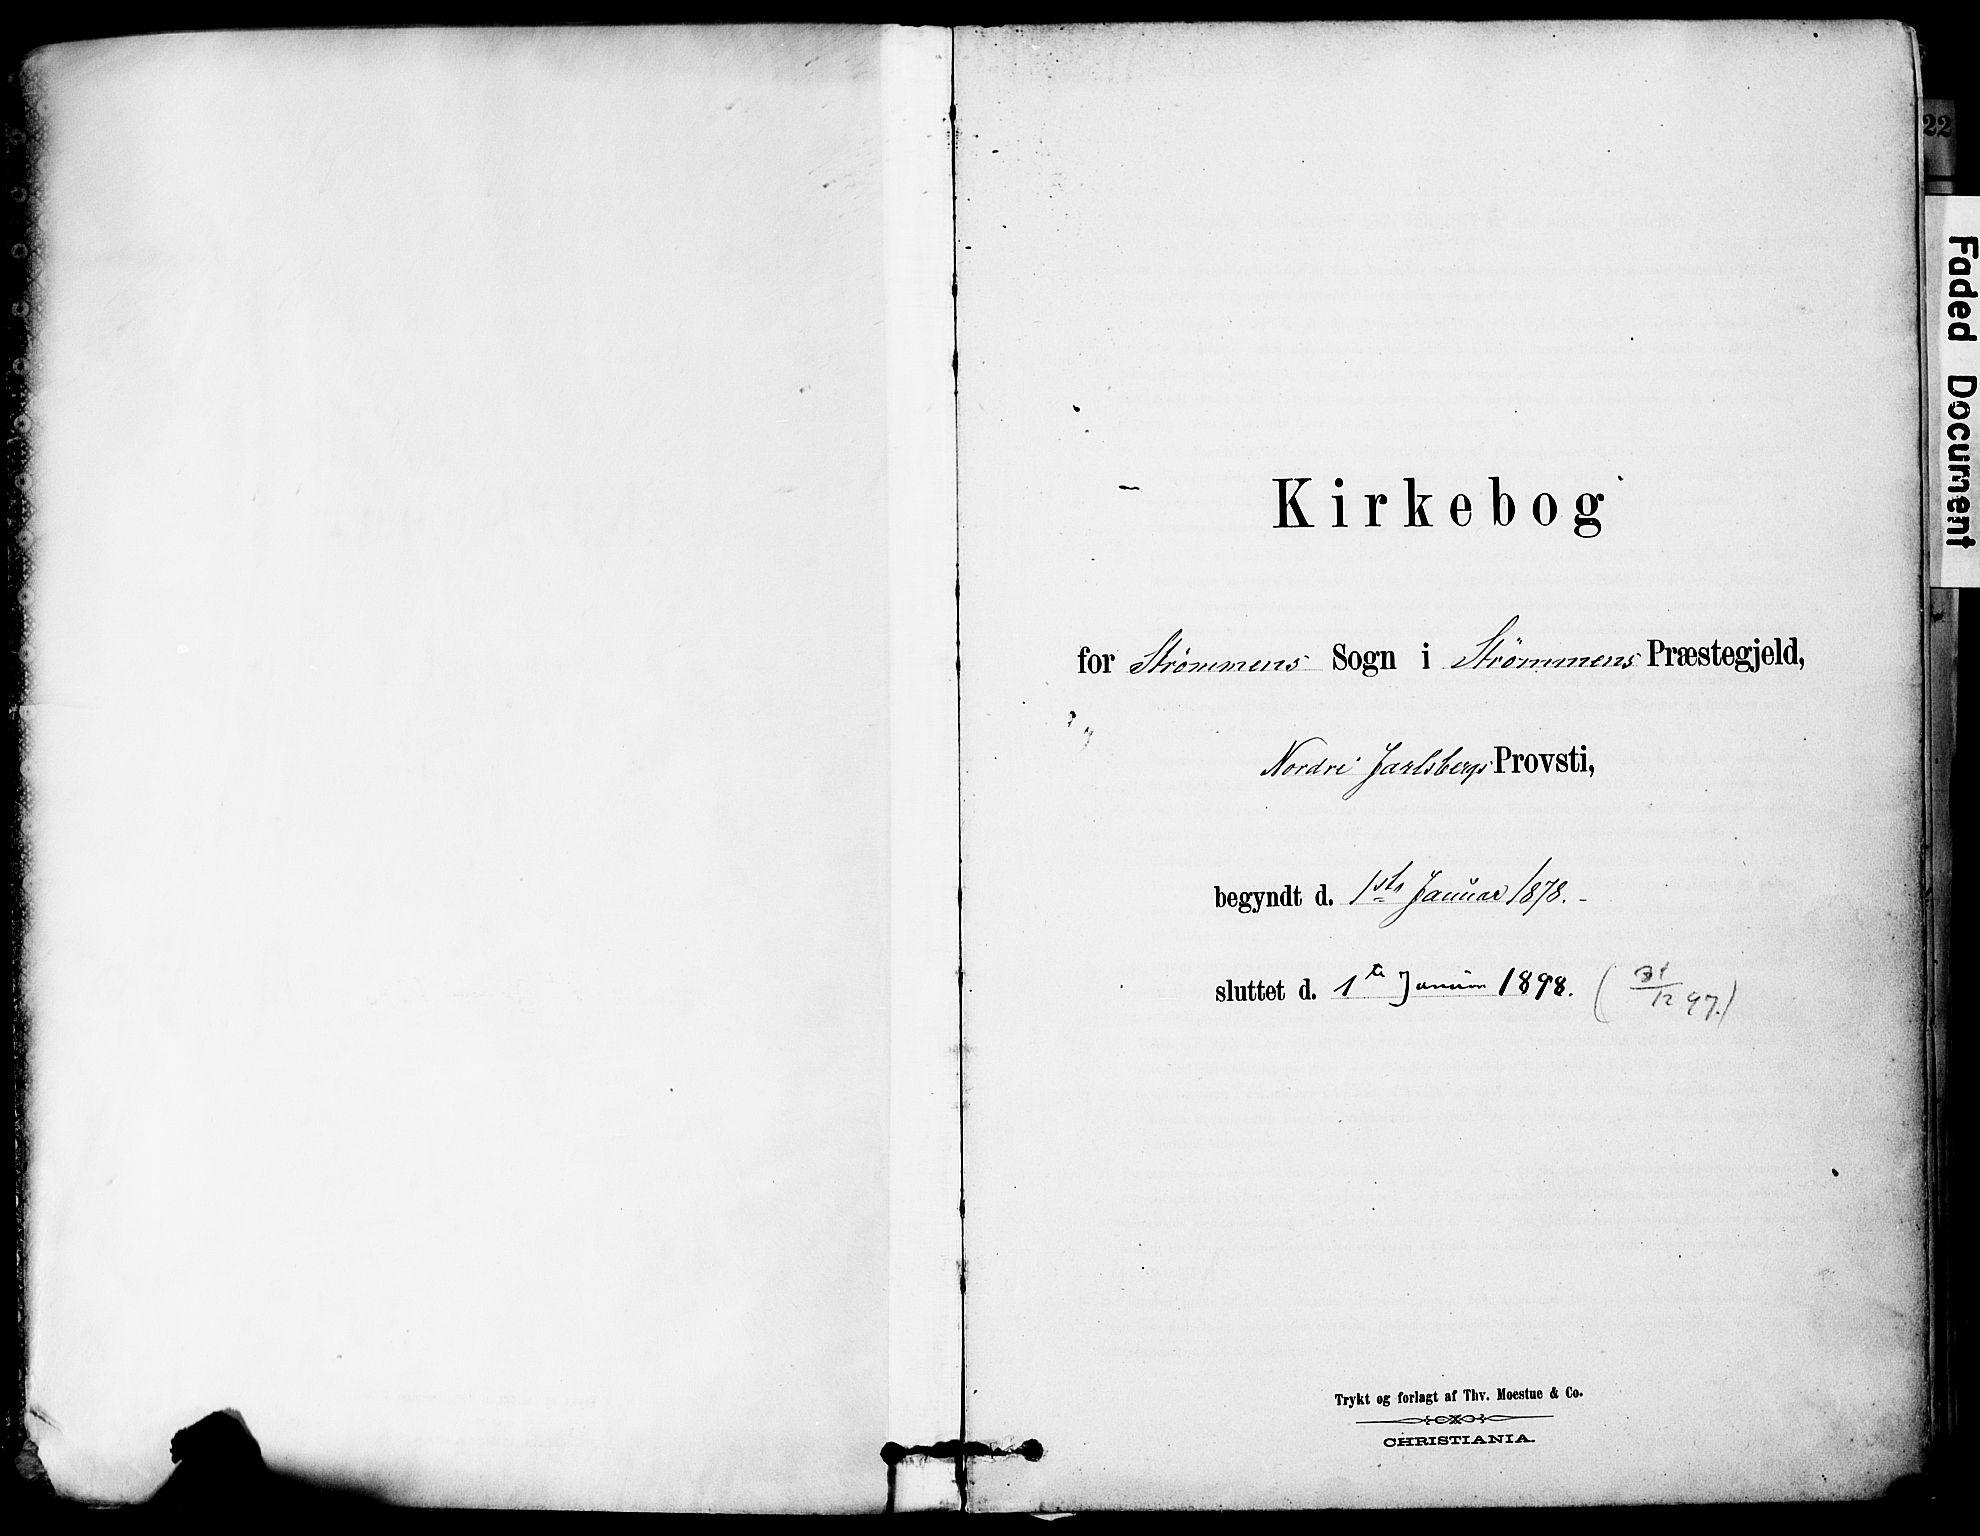 Kirkebog
for Strömmens Sogn i Strömmens Præstegjeld,
Nordre Jarlsbergs Provsti,
begyndt d. 1ste Januar 1878.-
sluttet d. 1te Januar 1898. (31/12 97.)
Trykt og forlagt af Thv. Moestue & Co.
CHRISTIANIA.
22
Faded Document